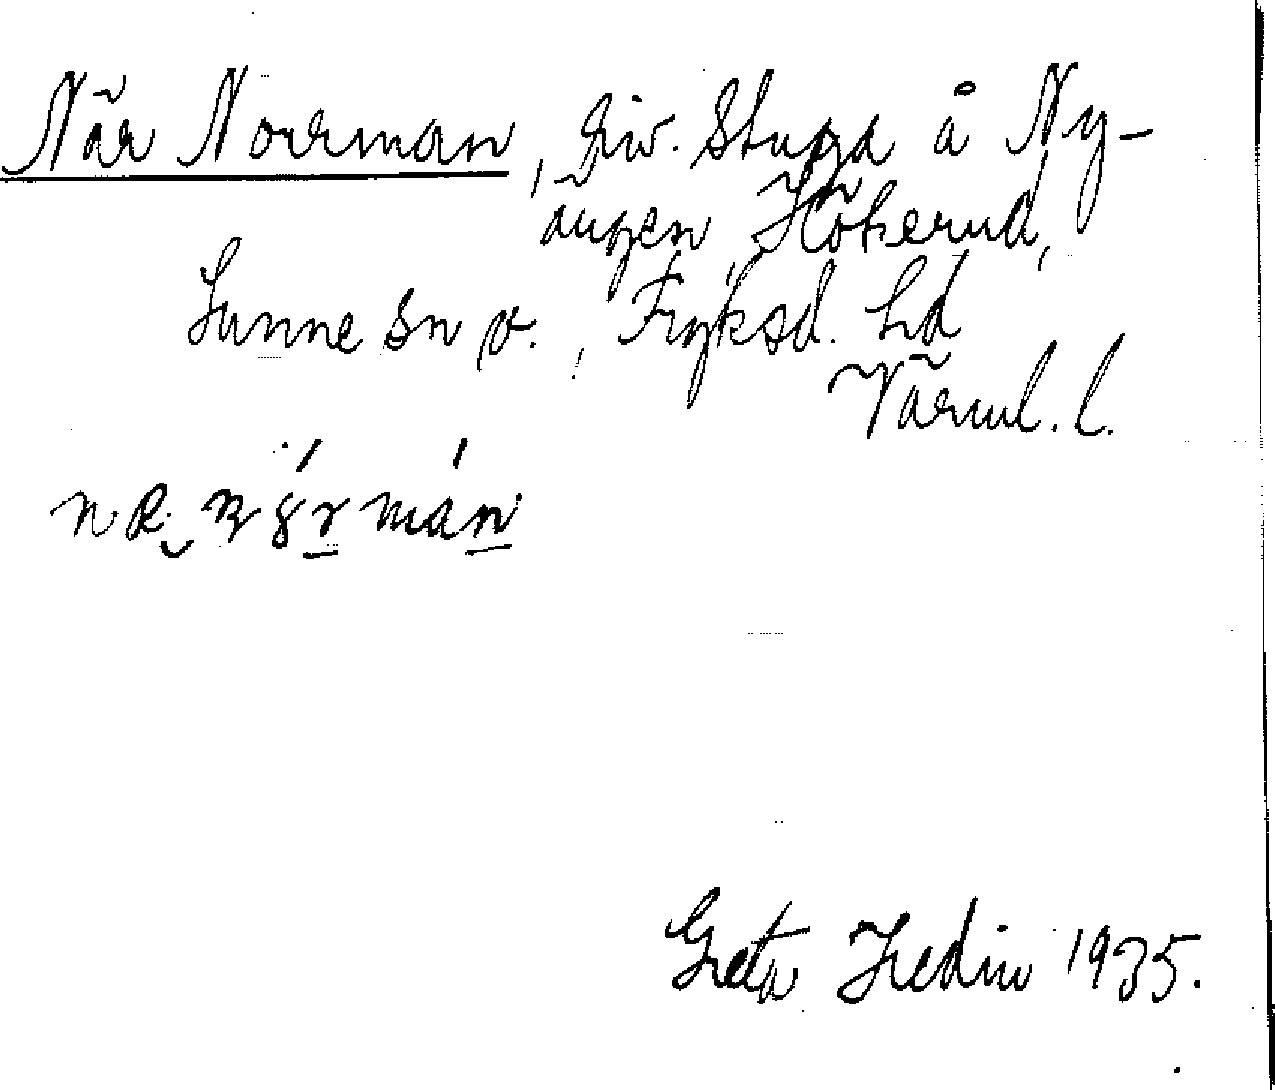 När Norrman, riv. Stuga å Ny-
ängen, Hökerud,
Sunne sn v., Fryksd. hd
Värml. l.
Greta Hedin 1935.